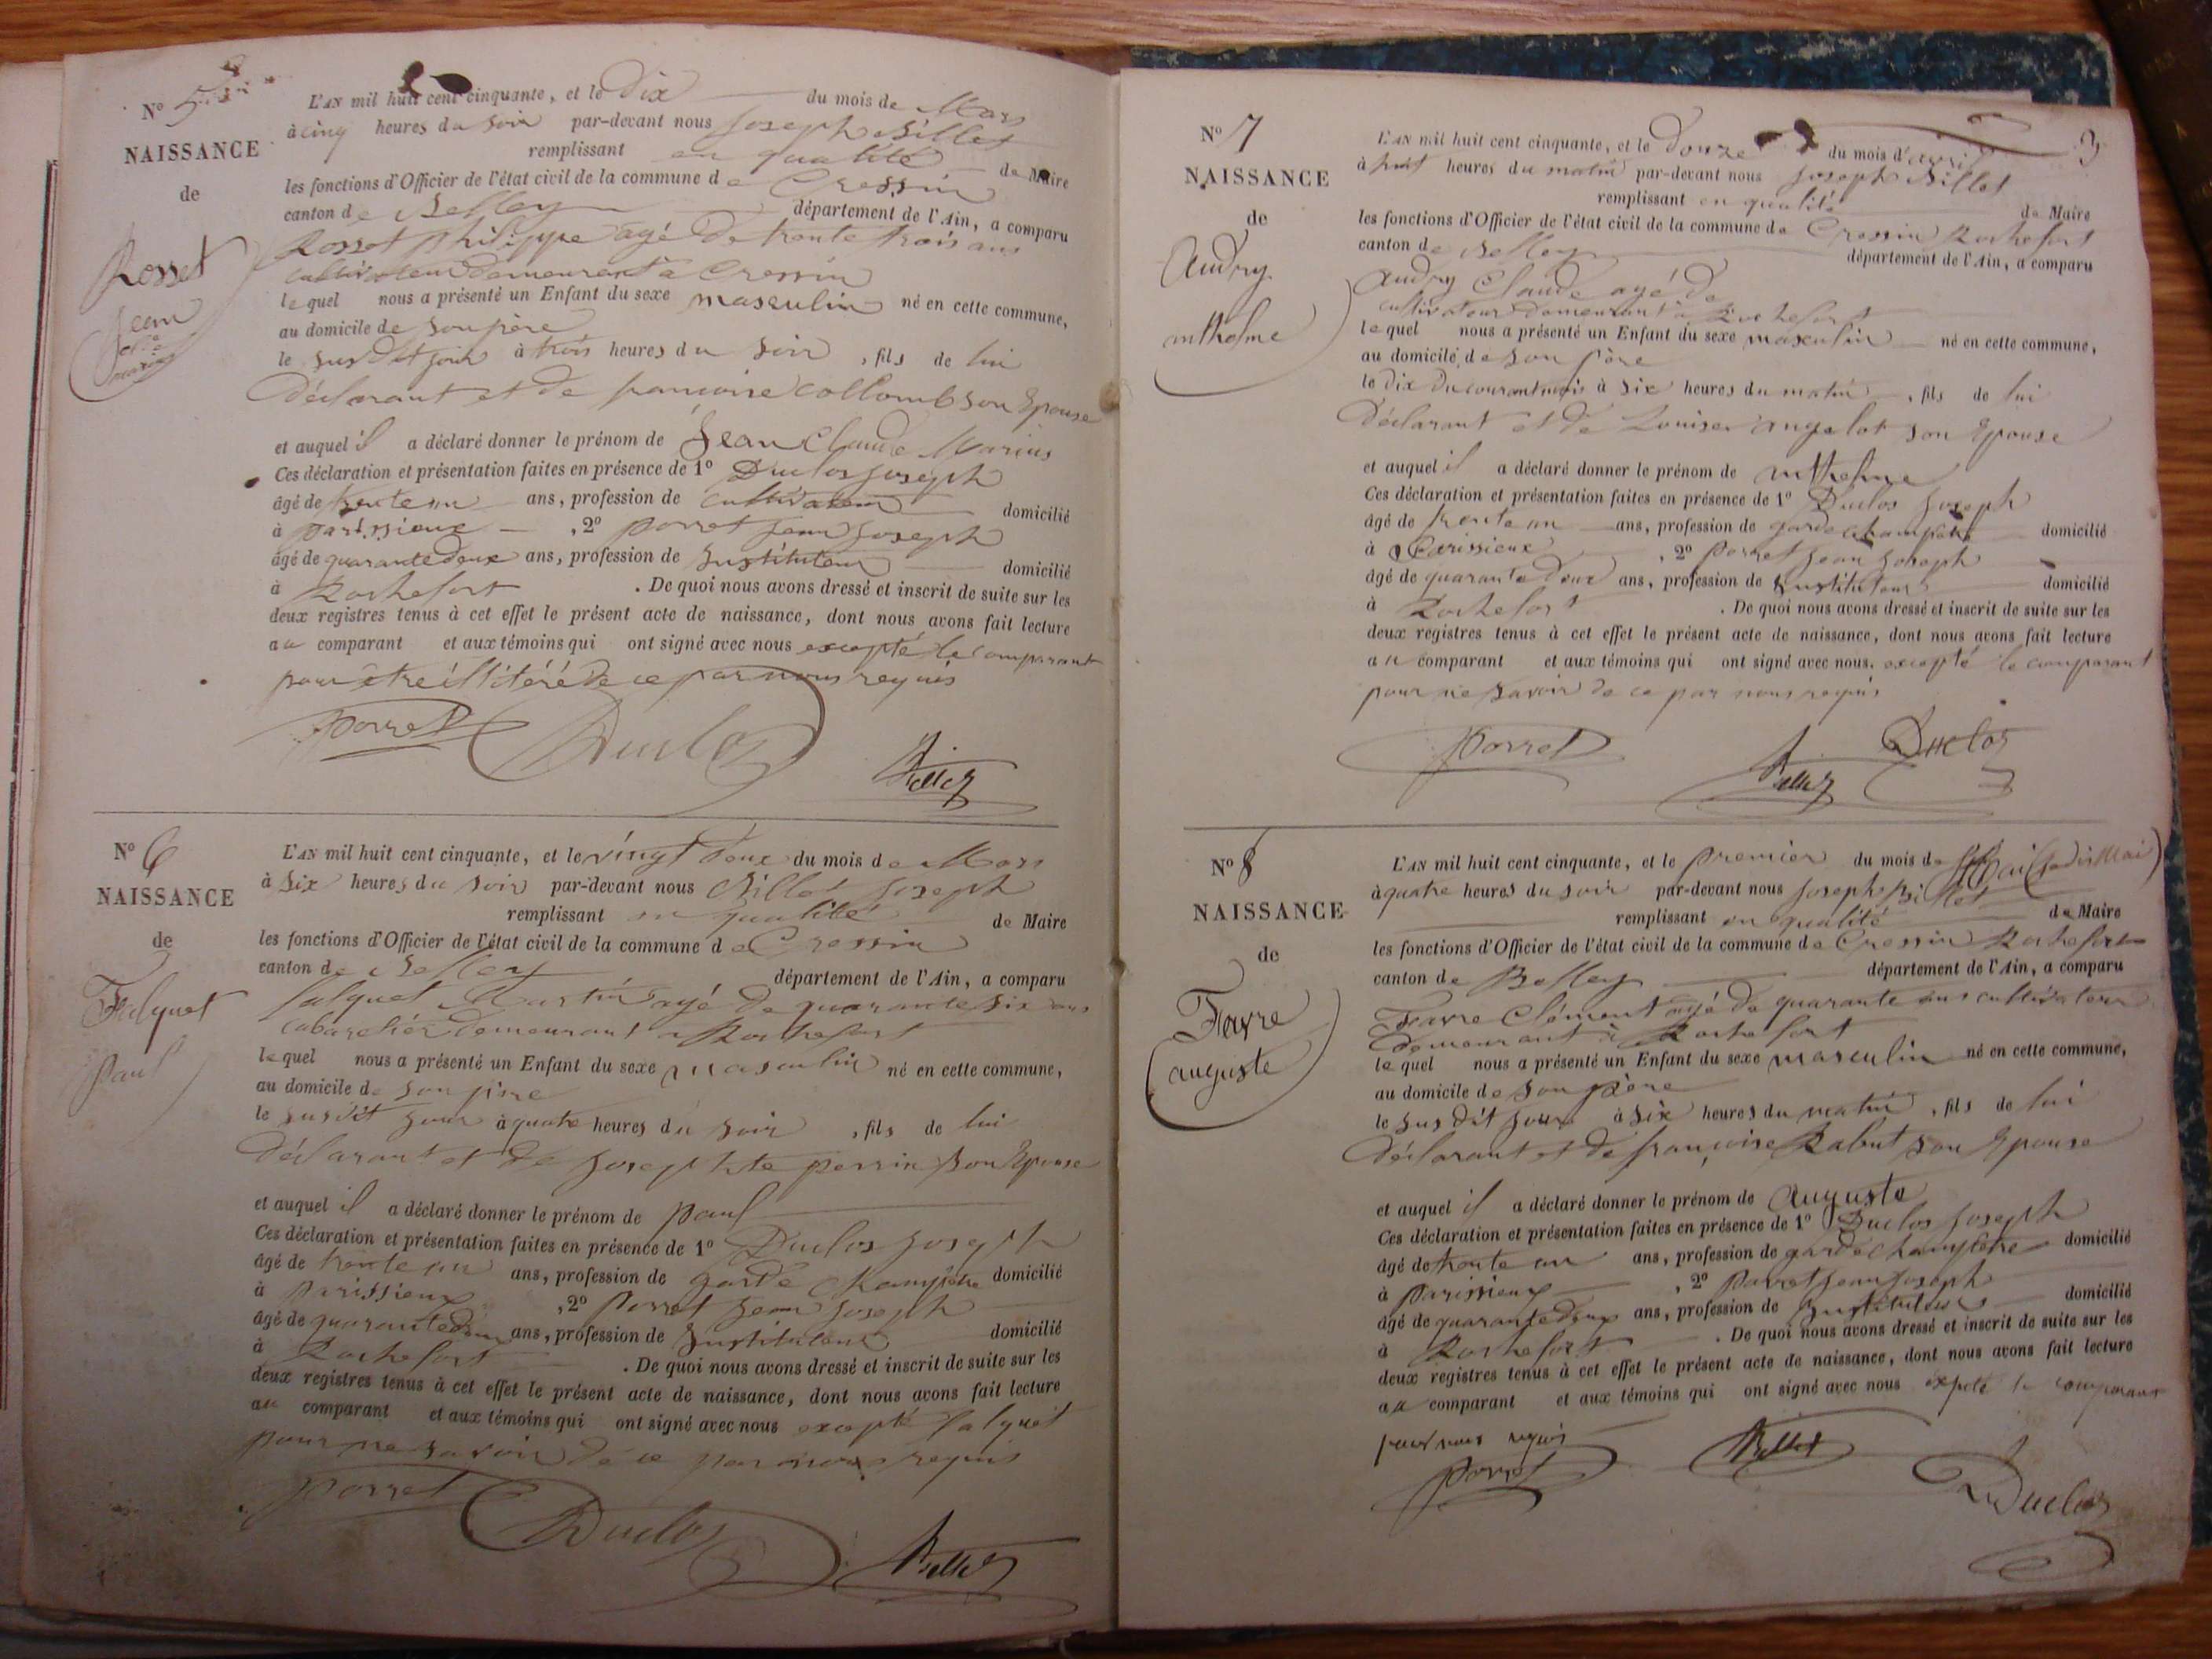 N° 5
NAISSANCE
de
Rosset
Jean
Cl.de
marius
L'AN mil huit cent cinquante, et le Dix du mois de Mars
à cinq heures du soir par-devant nous Joseph Billet
remplissant en qualité de Maire
les fonctions d'Officier de l'état civil de la commune de Cressin
canton de Belley département de l'Ain, a comparu
Rosset philippe agé de trente trois ans
cultivateur demeurant à Cressin
lequel nous a présenté un Enfant du sexe masculin né en cette commune,
au domicile de son père
le susdit jour à trois heures du soir, fils de lui
Déclarant et de francoise Collomb son Epouse
et auquel il a déclaré donner le prénom de Jean Claude Marius
Ces déclaration et présentation faites en présence de 1° Duclos Joseph
âgé de trente un ans, profession de cultivateur domicilié
à parissieux, 2° porret jean joseph
âgé de quarante deux ans, profession de Instituteur domicilié
à Rochefort. De quoi nous avons dressé et inscrit de suite sur les
deux registres tenus à cet effet le présent acte de naissance, dont nous avons fait lecture
au comparant et aux témoins qui ont signé avec nous excepté le comparant
pour être illitéré de ce par nous requis
porret Duclos Billet
N° 6
NAISSANCE
de
Falquet
Paul
L'AN mil huit cent cinquante, et le vingt deux du mois de Mars
à six heures du soir par-devant nous Billet Joseph
remplissant en qualité de Maire
les fonctions d'Officier de l'état civil de la commune de Cressin
canton de Belley département de l'Ain, a comparu
falquet Martin agé de quarante six ans
cabaretier demeurant a Rochefort
lequel nous a présenté un Enfant du sexe masculin né en cette commune,
au domicile de son père
le susdit jour à quatre heures du soir, fils de lui
Déclarant et de Josephte perrin son Epouse
et auquel il a déclaré donner le prénom de paul
Ces déclaration et présentation faites en présence de 1° Duclos Joseph
âgé de trente un ans, profession de garde champêtre domicilié
à parissieux, 2° Porret jean joseph
âgé de quarante deux ans, profession de Instituteur domicilié
à Rochefort. De quoi nous avons dressé et inscrit de suite sur les
deux registres tenus à cet effet le présent acte de naissance, dont nous avons fait lecture
au comparant et aux témoins qui ont signé avec nous excepté falquet
pour ne savoir de ce par nous requis
porret Duclos Billet
3
N° 7
NAISSANCE
de
Audry
mthelme
L'AN mil huit cent cinquante, et le Douze du mois d'avril
à huit heures du matin par-devant nous Joseph Billet
remplissant en qualité de Maire
les fonctions d'Officier de l'état civil de la commune de Cressin Rochefort
canton de Belley département de l'Ain, a comparu
Audry Claude agé de
cultivateur demeurant à Rochefort
lequel nous a présenté un Enfant du sexe masculin né en cette commune,
au domicile de son père
le dix du courant mois à six heures du matin, fils de lui
Déclarant et de Louise angelot son Epouse
et auquel il a déclaré donner le prénom de mthelme
Ces déclaration et présentation faites en présence de 1° Duclos Joseph
âgé de trente un ans, profession de garde champêtre domicilié
à Parissieux, 2° Porret jean joseph
âgé de quarante deux ans, profession de Instituteur domicilié
à Rochefort. De quoi nous avons dressé et inscrit de suite sur les
deux registres tenus à cet effet le présent acte de naissance, dont nous avons fait lecture
au comparant et aux témoins qui ont signé avec nous. excepté le comparant
pour ne savoir de ce par nous requis
porret Billet Duclos
N° 8
NAISSANCE
de
Favre
auguste
L'AN mil huit cent cinquante, et le premier du mois de Mai
à quatre heures du soir par-devant nous Joseph Billet
remplissant en qualité de Maire
les fonctions d'Officier de l'état civil de la commune de Cressin Rochefort
canton de Belley département de l'Ain, a comparu
Favre Clément agé de quarante ans cultivateur
demeurant à Rochefort
lequel nous a présenté un Enfant du sexe masculin né en cette commune,
au domicile de son père
le sus dit jour à six heures du matin, fils de lui
Déclarant et de françoise Rabut son Epouse
et auquel il a déclaré donner le prénom de Auguste
Ces déclaration et présentation faites en présence de 1° Duclos Joseph
âgé de trente un ans, profession de garde champêtre domicilié
à parissieux, 2° Porret jean joseph
âgé de quarante deux ans, profession de Instituteur domicilié
à Rochefort. De quoi nous avons dressé et inscrit de suite sur les
deux registres tenus à cet effet le présent acte de naissance, dont nous avons fait lecture
au comparant et aux témoins qui ont signé avec nous expeté le comparant
requis
porret Billet Duclos